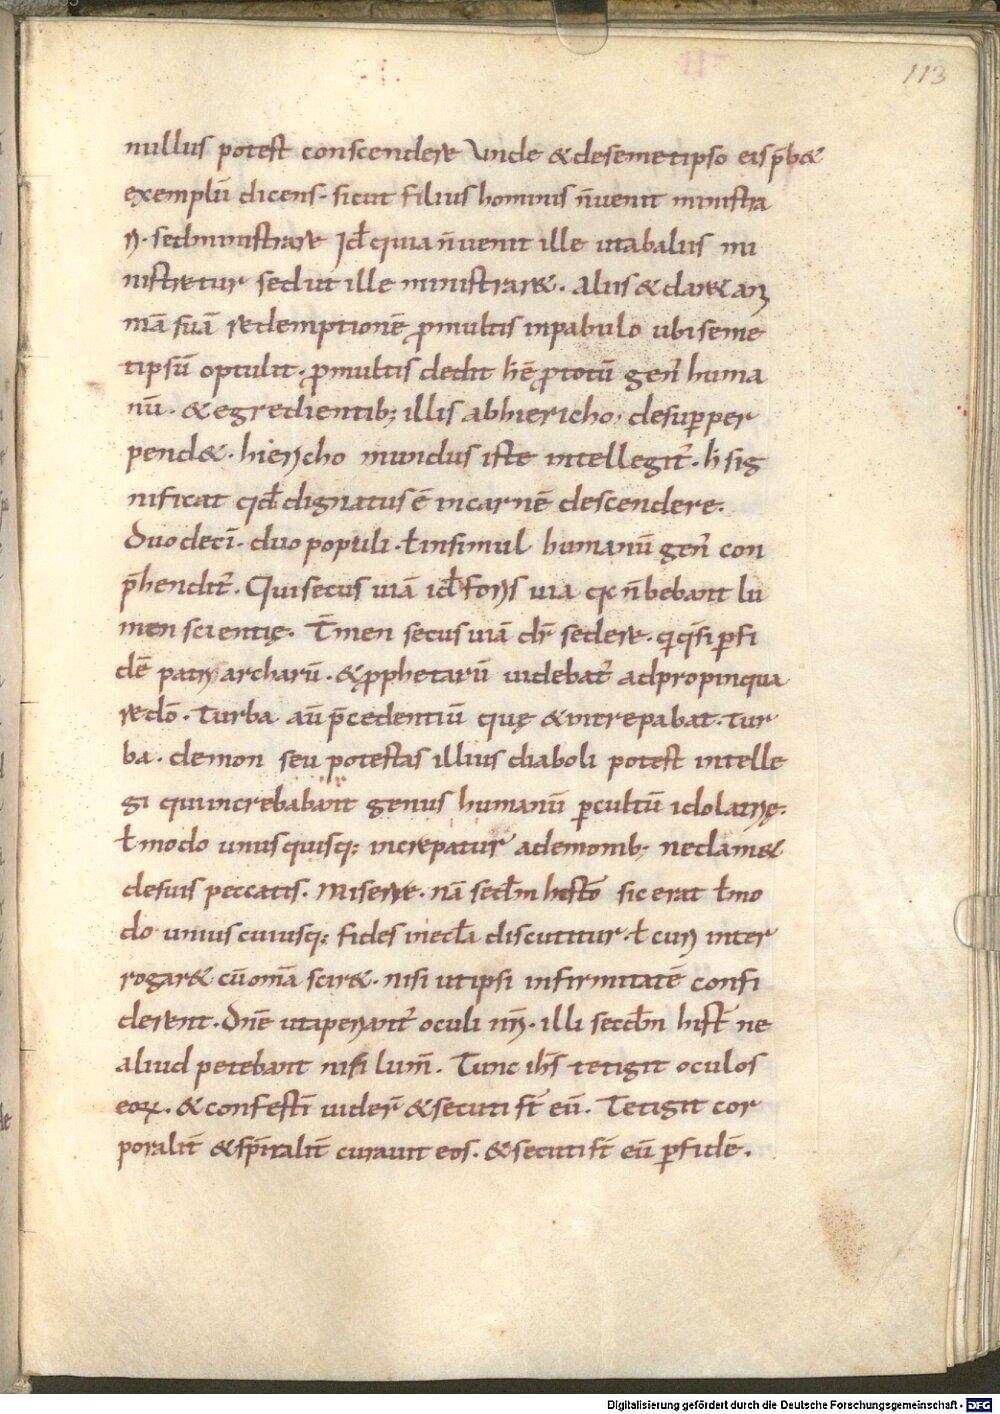 113
nullus potest conscendere Unde & desemetipso eis p̄b&
exemplū dicens. sicut filius hominis n̄ uenit ministra
ri. sed ministrare Id̄ quia n̄ uenit ille utabaliis mi
nistretur sed ut ille ministrar&. aliis & dar& ani
mā suā redemptionē ꝓmultis inpabulo ubi seme
tipsū optulit. ꝓmultis dedit h̄ ē ꝓtotū gen̄ huma
nū. & egredientib; illis abhiericho. desuꝑ per
pend&. hiericho mundus iste intellegit̄. h̄ sig
nificat qd̄ dignatus ē incarnē descendere.
Duo decī. duo populi. ł insimul humanū gen̄ con
p̄hendit̄. Qui secus uiā id̄ foris uia qa n̄ bebant lu
men scientię. T̄men secus uiā dr̄ sedere. qi qͣsi ꝑ fi
dē patriarcharū. & ꝓphetarū uidebat̄ adpropinqua
re dō. Turba aū p̄cedentiū quę & increpabat. tur
ba. demon seu potestas illius diaboli potest intelle
gi qui increbabant genus humanū ꝑ cultū idolatrię.
ł modo unusquisq; increpatur ademonib; neclam&
desuis peccatis. Miserere. nā secd̄m histō sic erat ł mo
do uniuscuiusq; fides inecl̄a discutitur. ł cur inter
rogar& cū om̄a scir&. nisi ut ipsi infirmitatē confi
derent. Dn̄e ut aperiant̄ oculi nr̄i. illi secd̄m hist̄ ne
aliud petebant nisi lum̄. Tunc ih̄s tetigit oculos
eoꝝ. & confestī uider̄ & secuti st̄ eū. Tetigit cor
poralit̄ & sp̄italit̄ curauit eos. & secuti st̄ eū ꝑ fidē.
Digitalisierung gefördert durch die Deutsche Forschungsgemeinschaft - DFG